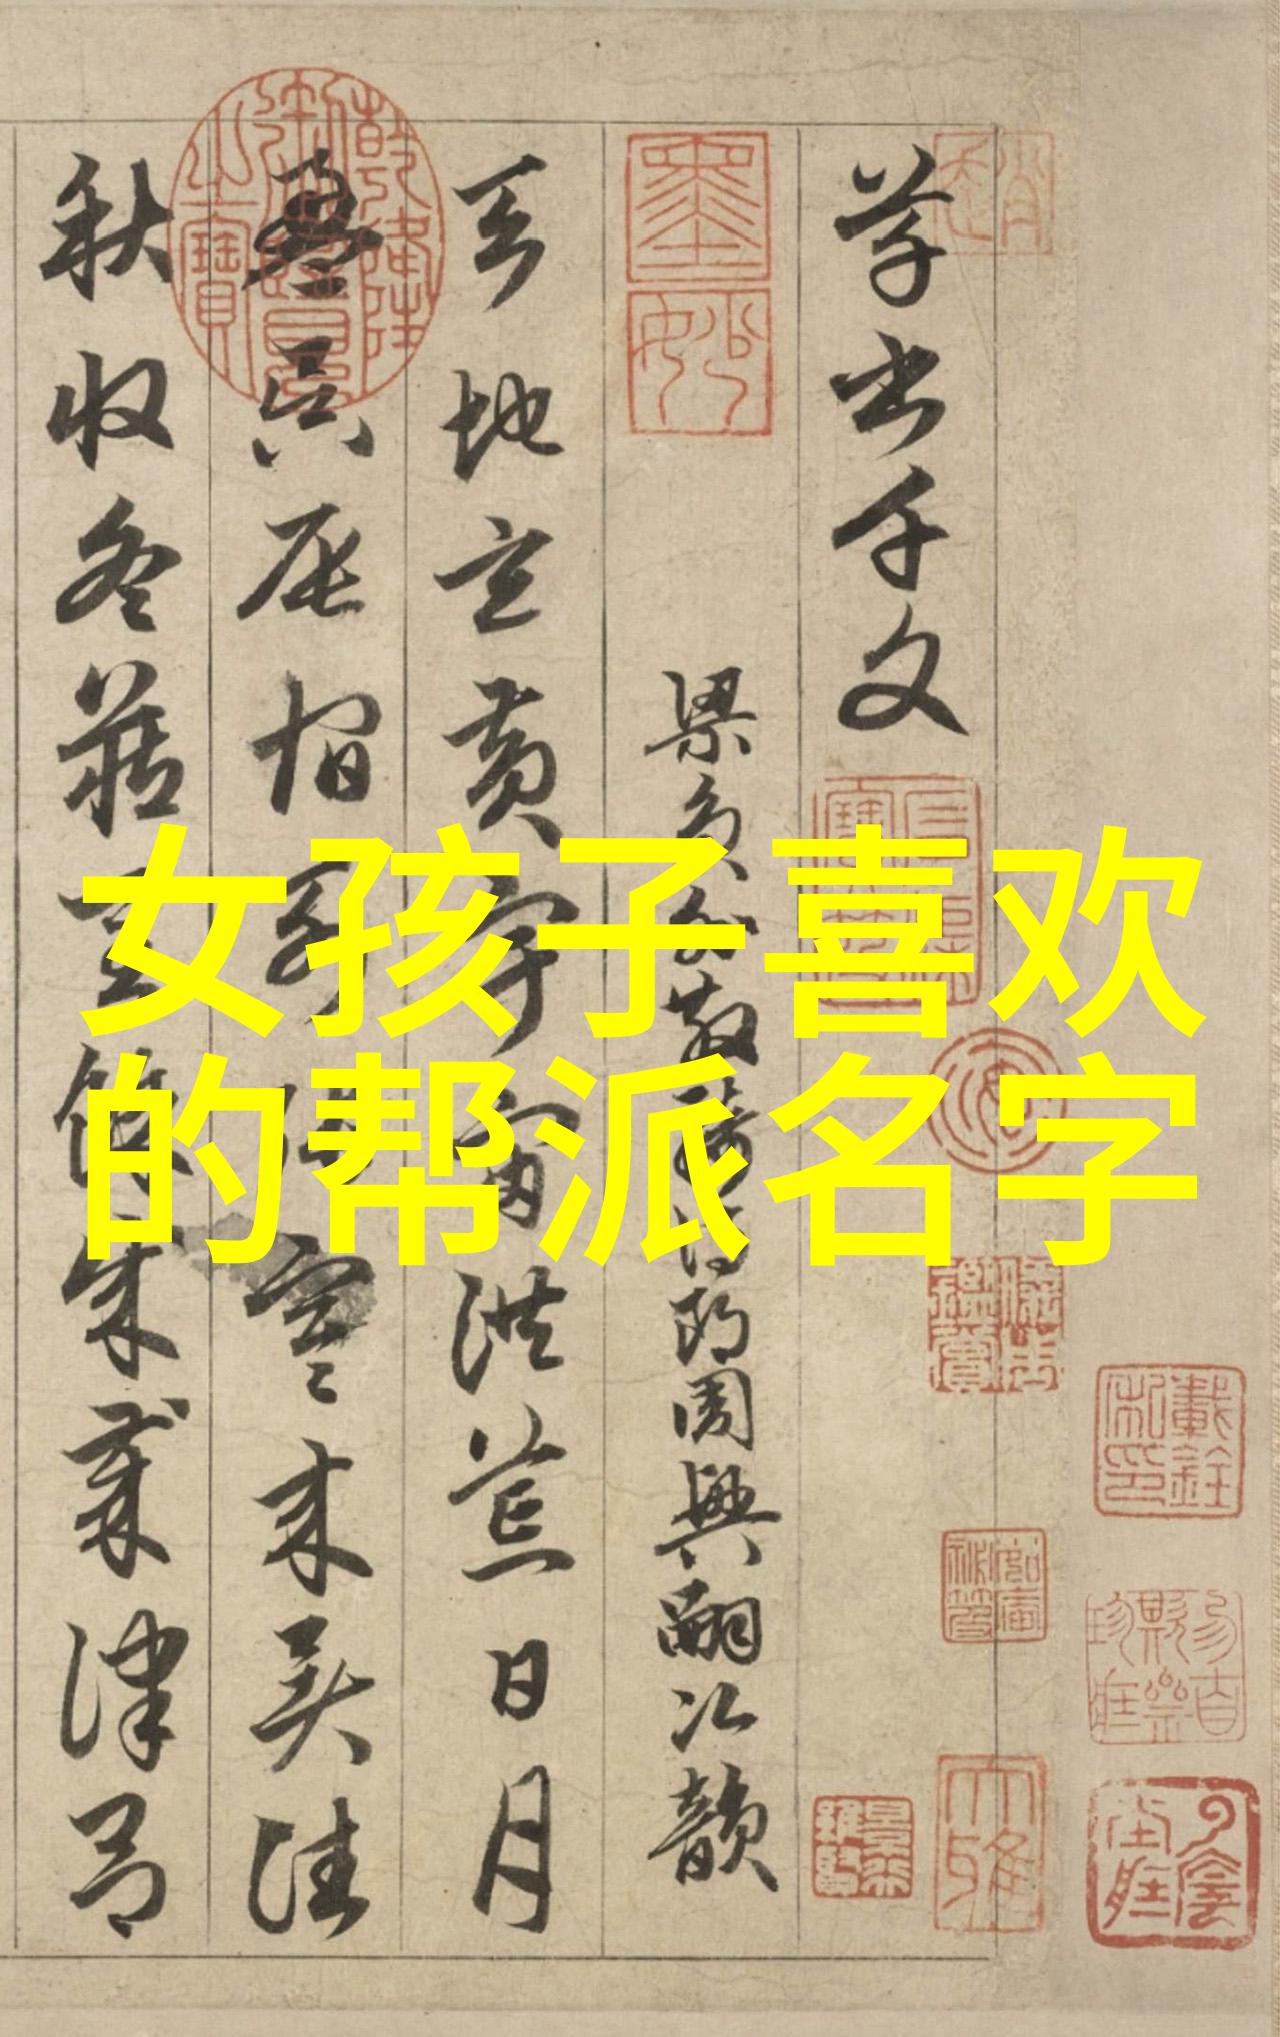 女孩子喜欢
的帮派名字
草書千文
梁員外散騎侍郎周興嗣次韻
天地玄黄宇宙洪荒日月
盈昃辰宿列張寒来暑往
秋收冬藏閏餘成歲律吕
墨妙
大雅